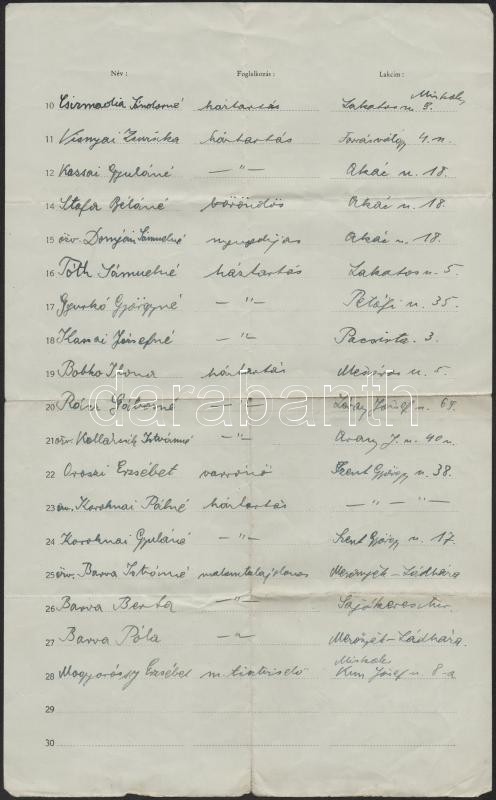 Név: Foglalkozás: Lakcím:
Miskolc
10 Csizmadia Sándorné háztartás Lakatos u. 8.
11 Visnyai Zsuzsika háztartás 4. u.
12 Kassai Gyuláné — " — Akác u. 18.
14 Stefa Béláné bőröndös Akác u. 18.
15 özv. Domján Sámuelné nyugdíjas Akác u. 18.
16 Tóth Sámuelné háztartás Lakatos u. 5.
17 Gyurkó Györgyné — " — Petőfi u. 35.
18 Kanai Józsefné — " — Pacsirta. 3.
19 Bobko Ilona háztartás u. 5.
20 Rácz Gáborné — " — József u. 69.
21 özv. Kollárcsik Istvánné — " — Arany J. u. 40 u.
22 Oroszi Erzsébet varrónő Szent György u. 38.
23 özv. Koroknai Pálné háztartás — " — " —
24 Koroknai Gyuláné — " — Szent György u. 17.
25 özv. Barva Istvánné malomtulajdonos Mercnyék-Ládháza
26 Barva Berta — " — Sajókeresztur.
27 Barva Póla — " — Mercnyék-Ládháza.
Miskolc
28 Magyaróssy Erzsébet m. tisztviselő Kun József u. 8-a
29
30
darabanth